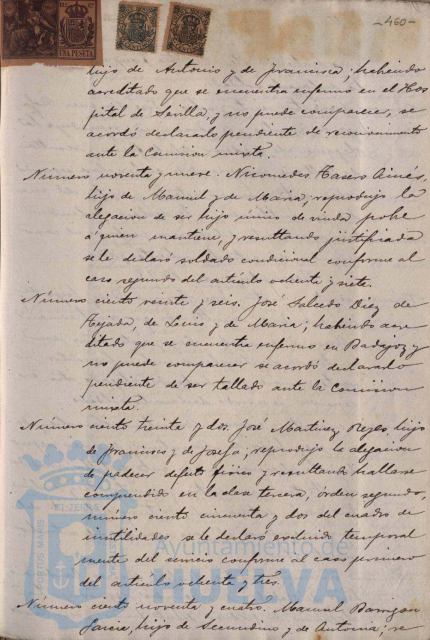 -460-
UNA PESETA
hijo de Antonio y de Francisca; habiendo
acreditado que se encuentra enfermo en el Hos
pital de Sevilla, y no puede comparecer, se
acordó declararlo pendiente de reconocimiento
ante la Comision mixta.
Número noventa y nueve. Nicomedes Tasero
hijo de Manuel y de Maria, reprodujo la
alegacion de ser hijo unico de viuda pobre
á quien mantiene, y resultando justificada
se le declaró soldado condicional conforme al
caso segundo del artículo ochenta y siete.
Número ciento veinte y seis. José Salcedo Diez de
Tejada, de Luis y de Maria; habiendo acre
ditado que se encuentra enfermo en Badajoz y
no puede comparecer se acordó declararlo
pendiente de ser tallado ante la Comision
mixta.
Número ciento treinta y dos. José Martinez Reyes hijo
de Francisco y de Josefa; reprodujo la alegacion
de padecer defecto fisico y resultando hallarse
comprendido en la clase tercera, órden segundo,
número ciento cincuenta y dos del cuadro de
inutilidades se le declaró excluido temporal
mente del servicio conforme al caso primero
del artículo ochenta y tres.
Número ciento noventa y cuatro. Manuel Barrigon
Garcia, hijo de Secundino y de Antonia; se
PORTUS MARIS
Ayuntamiento de
HUELVA